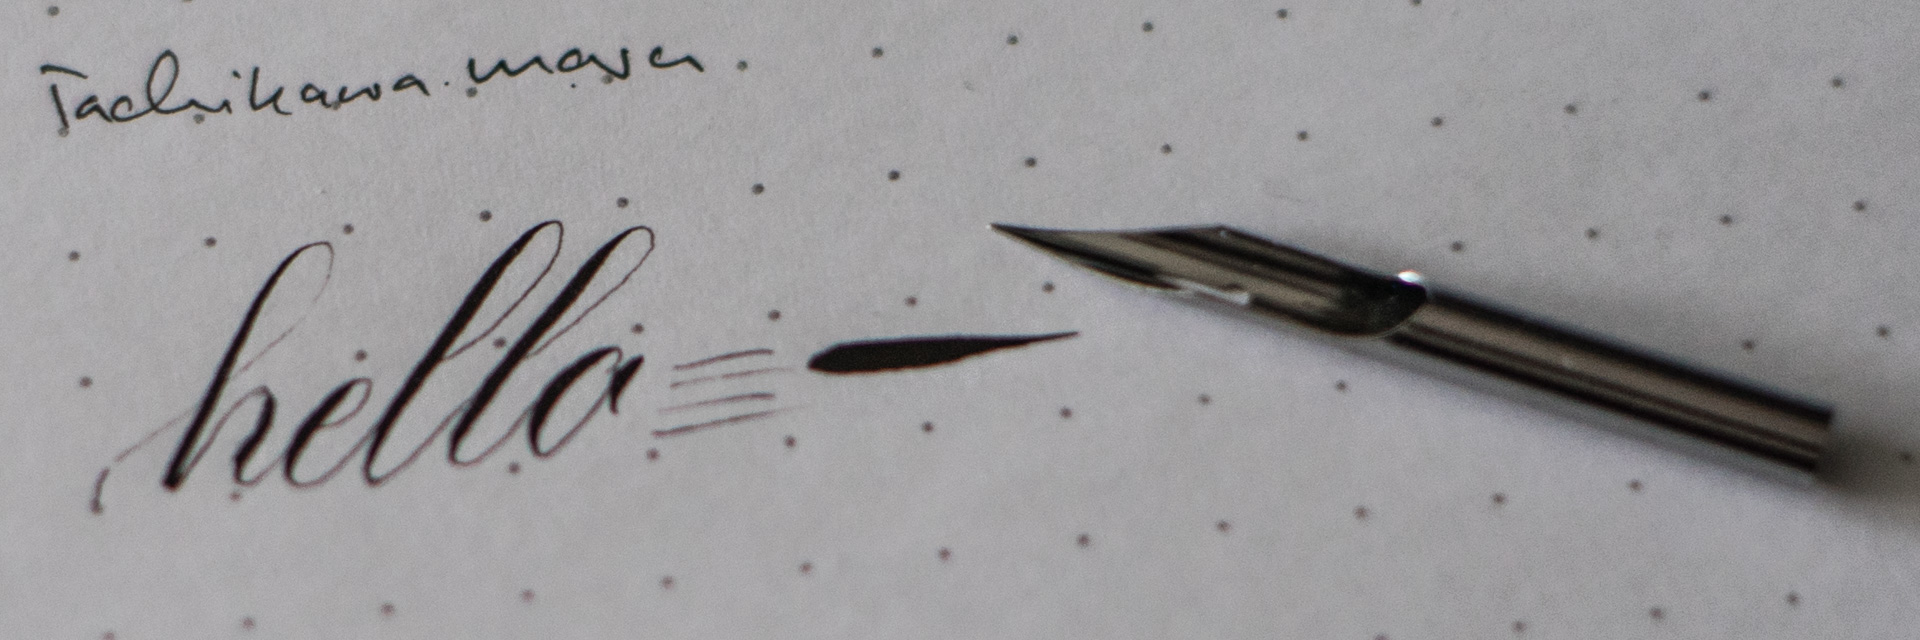 Tachikawa maru
hello